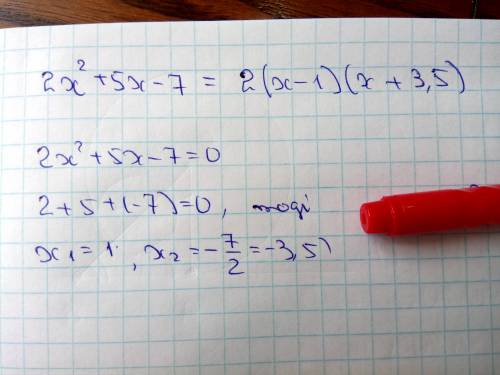 2x² + 5x - 7 = 2(x - 1)(x + 3,5)
2x² + 5x - 7 = 0
2 + 5 + (-7) = 0, тоді
x₁ = 1, x₂ = -7/2 = -3,5